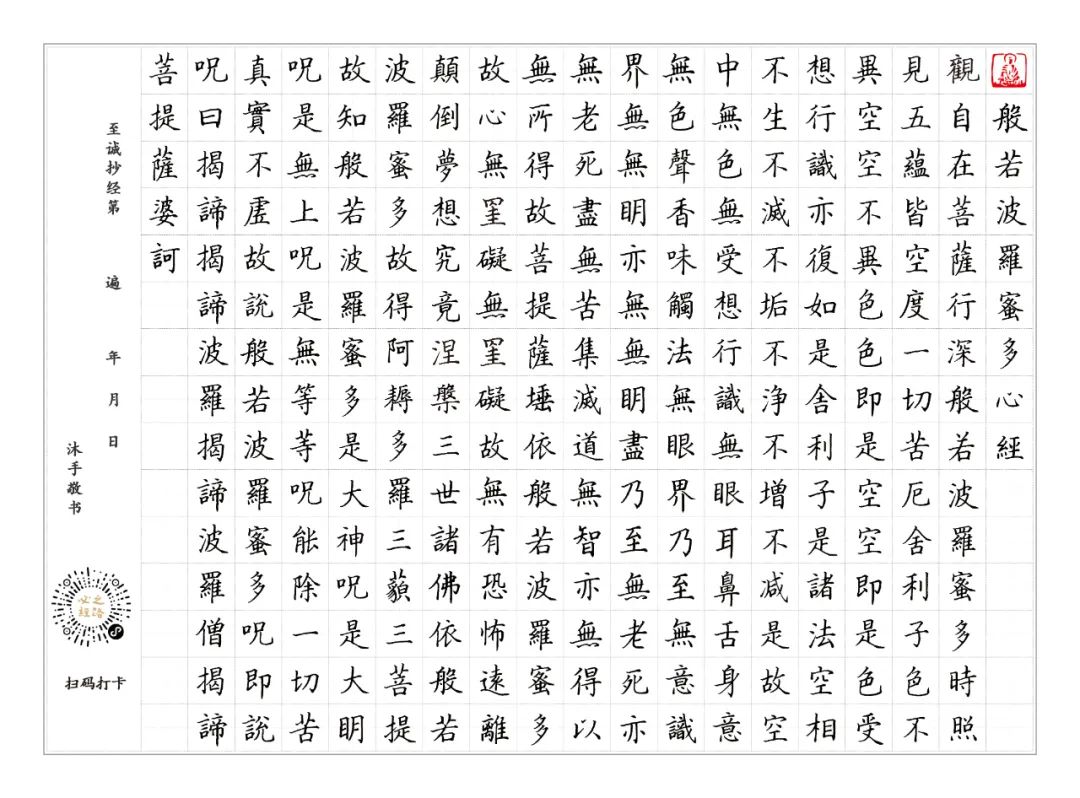 般若波羅蜜多心經
觀自在菩薩行深般若波羅蜜多時照
見五蘊皆空度一切苦厄舍利子色不
異空空不異色色即是空空即是色受
想行識亦復如是舍利子是諸法空相
不生不滅不垢不浄不增不減是故空
中無色無受想行識無眼耳鼻舌身意
無色聲香味觸法無眼界乃至無意識
界無無明亦無無明盡乃至無老死亦
無老死盡無苦集滅道無智亦無得以
無所得故菩提薩埵依般若波羅蜜多
故心無罣礙無罣礙故無有恐怖遠離
顛倒夢想究竟涅槃三世諸佛依般若
波羅蜜多故得阿耨多羅三藐三菩提
故知般若波羅蜜多是大神呪是大明
呪是無上呪是無等等呪能除一切苦
真實不虛故說般若波羅蜜多呪即說
呪曰揭諦揭諦波羅揭諦波羅僧揭諦
菩提薩婆訶
至诚抄经第 遍 年 月 日
沐手敬书
扫码打卡